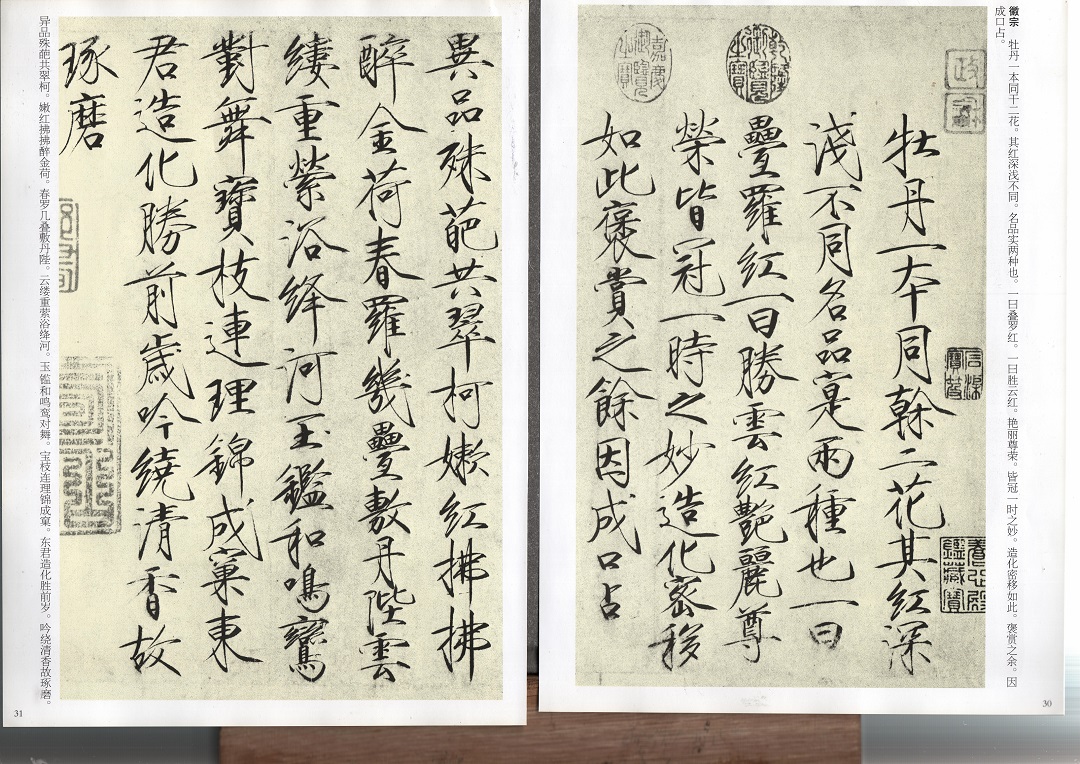 徽宗 牡丹一本同干二花。其红深浅不同。名品实两种也。一曰叠罗红。一曰胜云红。艳丽尊荣。皆冠一时之妙。造化密移如此。褒赏之余。因
成口占。
政和
石渠寶笈
養心殿鑑藏寶
牡丹一本同榦二花其紅深
淺不同名品寔兩種也一曰
疊羅紅一曰勝雲紅艷麗尊
榮皆冠一時之妙造化密移
如此褒賞之餘因成口占
乾隆御覽之寶
嘉慶御覽之寶
30
異品殊葩共翠柯嫩紅拂拂
醉金荷春羅幾疊敷丹陛雲
縷重縈浴絳河玉鑑和鳴鸞
對舞寶枝連理錦成窠東
君造化勝前歲吟繞清香故
琢磨
异品殊葩共翠柯。嫩红拂拂醉金荷。春罗几叠敷丹陛。云缕重萦洛绛河。玉镒和鸣鸾对舞。宝枝连理锦成窠。东君造化胜前岁。吟绕清香故琢磨。
31